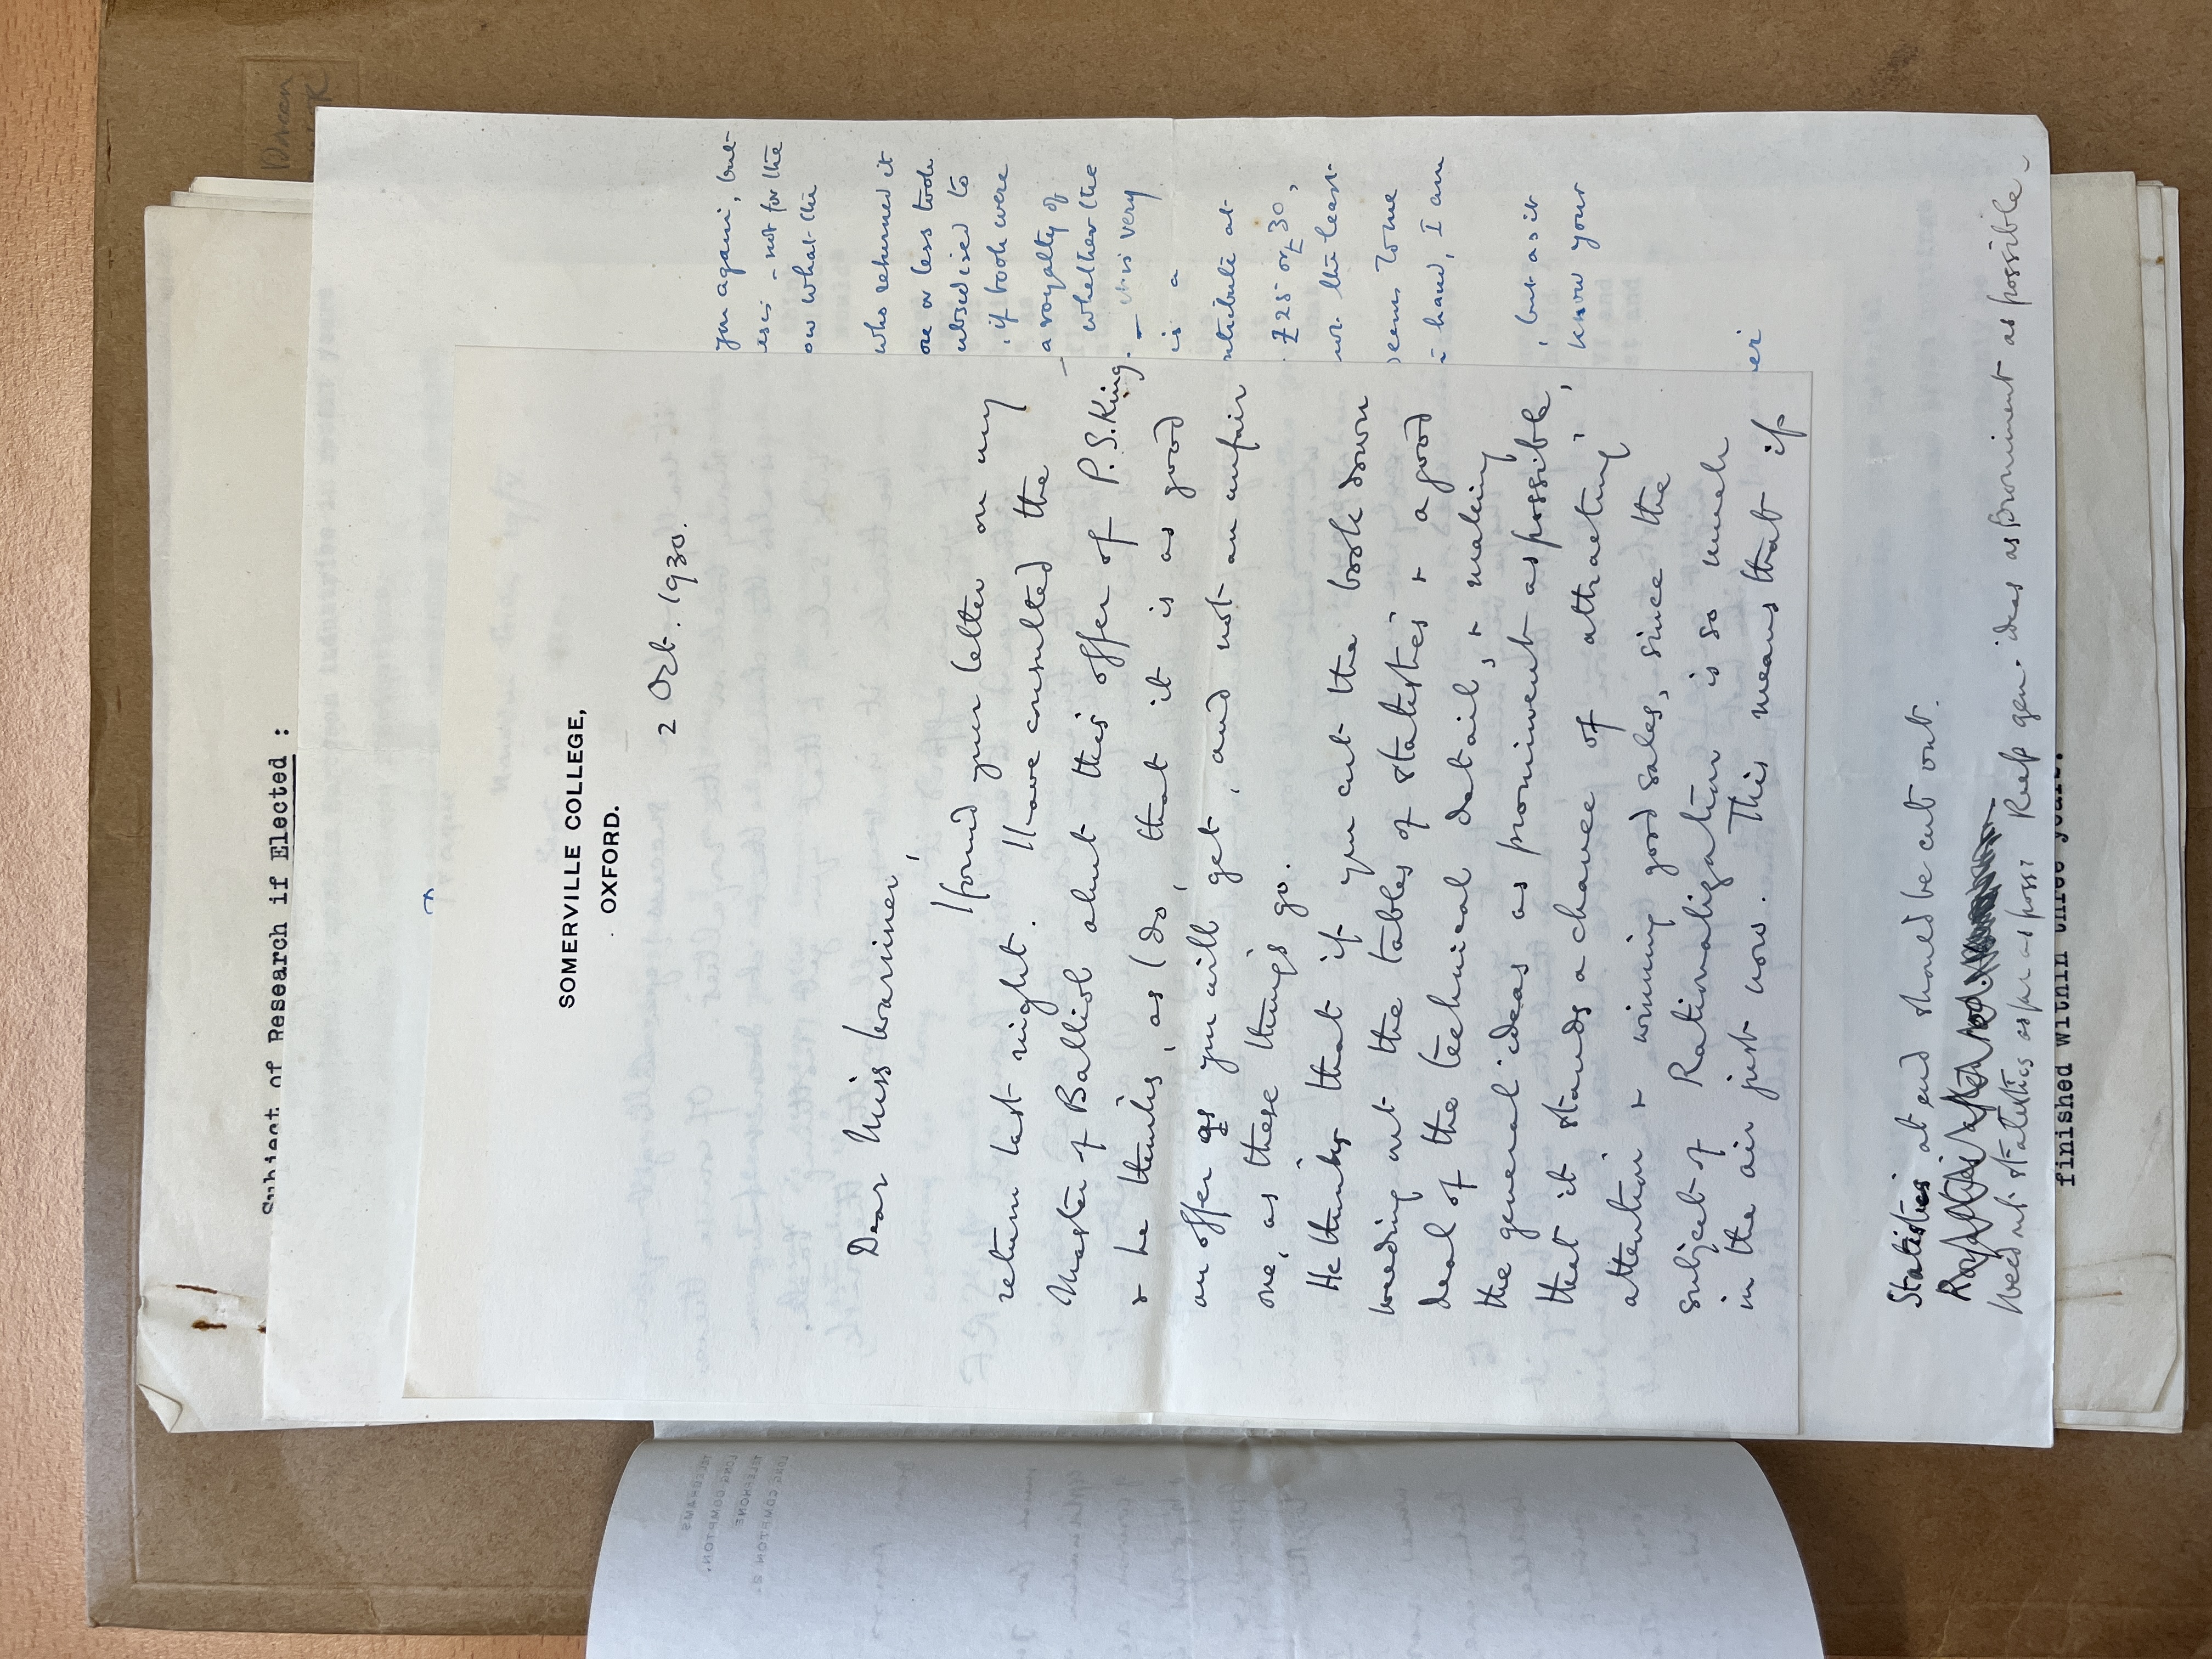 Subject of Research if Elected :
SOMERVILLE COLLEGE,
OXFORD.
2 Oct. 1930.
Dear Miss Warriner,
I found your letter on my
return last night. I have consulted the
Master of Balliol about this offer of P. S. King.
& he thinks, as I do, that it is as good
an offer as you will get, and not an unfair
one, as these things go.
He thinks that if you cut the book down
weeding out the tables of statistics & a good
deal of the technical detail, & making
the general ideas as prominent as possible,
that it stands a chance of attracting
attention & winning good sales, since the
subject of Rationalization is so much
in the air just now. This means that if
you again, but
esis - not for the
ow what the
who returned it
one or less took
ubsidised to
, if book were
a royalty of
whether the
- this is very
is a
ntribute at
£25 or £30,
not the least
seems to me
hand, I am
, but as it
know your
er
Statistics at end should be cut out.
Weed out statistics as far as poss: Keep gen. ideas as prominent as possible.
finished within three years.
TELEGRAMS
LONG COMPTON.
TELEPHONE
LONG COMPTON